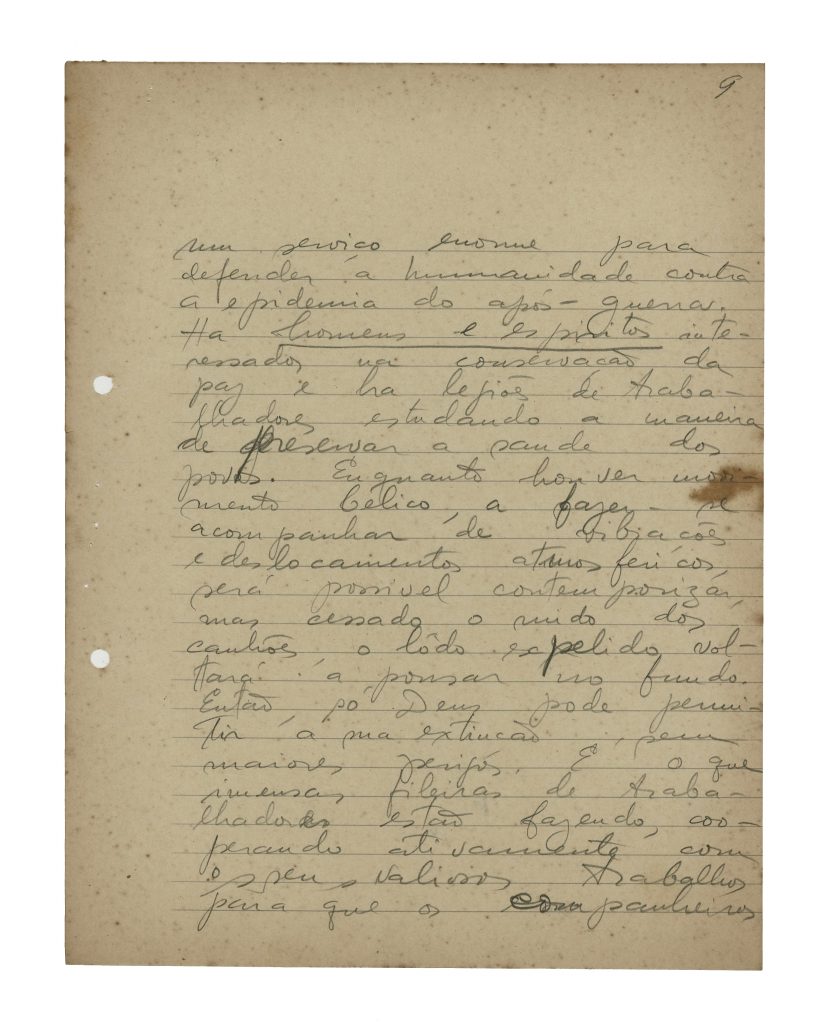 9
um serviço enorme para
defender á humanidade contra
a epidemia do após-guerra.
Ha homens e espiritos inte-
ressados na conservação da
paz e ha legiões de traba-
lhadores estudando a maneira
de preservar a saude dos
povos. Enquanto houver movi-
mento bélico, a fazer-se
acompanhar de vibrações
e deslocamentos atmosfericos,
será possivel contemporizár,
mas cessado o ruido dos
canhões o lôdo expelido vol-
tará á pousar no fundo.
Então só Deus pode permi-
tir á sua extinção, sem
maiores perigos. E o que
imensas fileiras de traba-
lhadores estão fazendo, coo-
perando ativamente com
os seus valiosos trabalhos
para que os companheiros